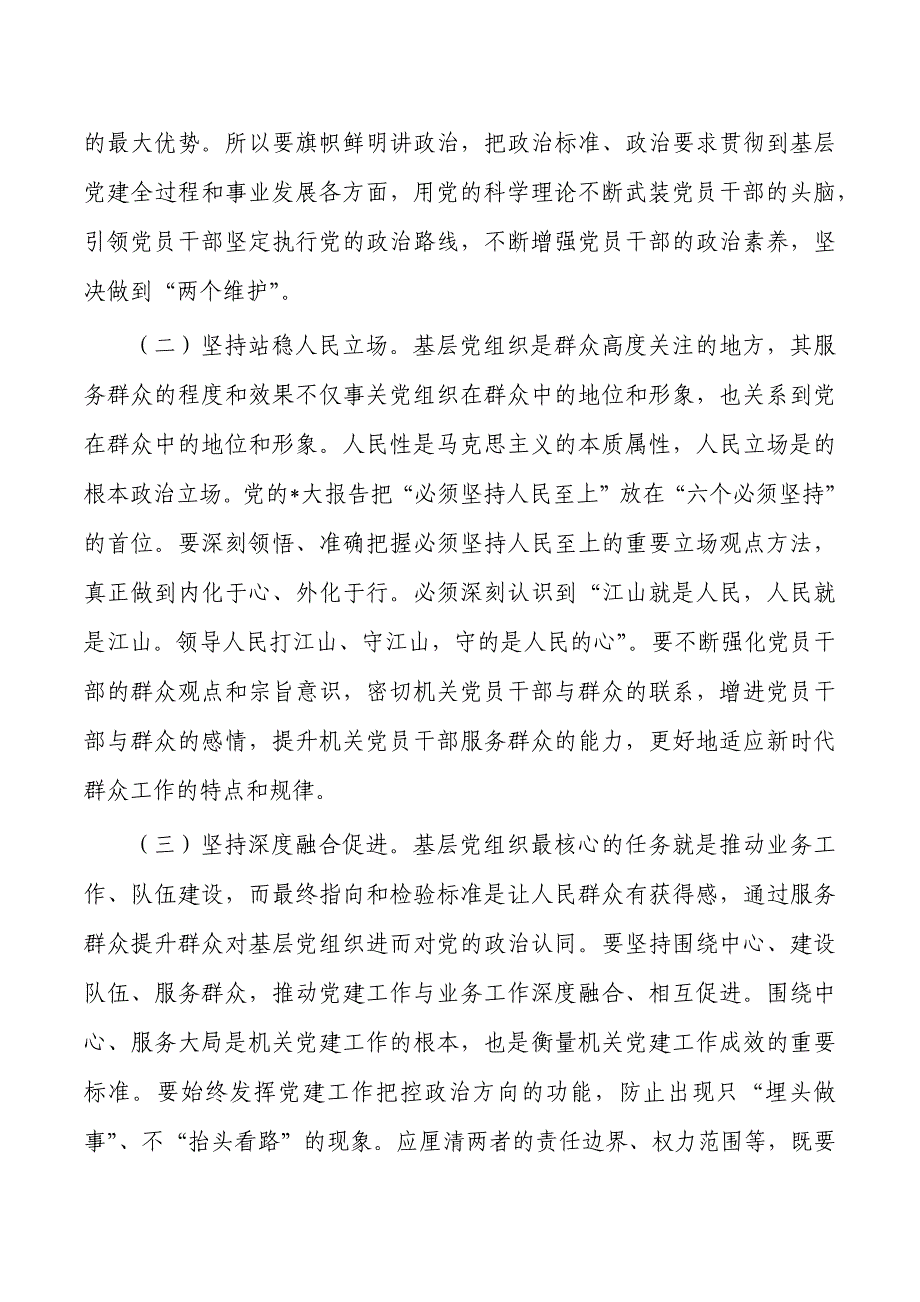 的最大优势。所以要旗帜鲜明讲政治，把政治标准、政治要求贯彻到基层
党建全过程和事业发展各方面，用党的科学理论不断武装党员干部的头脑，
引领党员干部坚定执行党的政治路线，不断增强党员干部的政治素养，坚
决做到“两个维护”。
（二）坚持站稳人民立场。基层党组织是群众高度关注的地方，其服
务群众的程度和效果不仅事关党组织在群众中的地位和形象，也关系到党
在群众中的地位和形象。人民性是马克思主义的本质属性，人民立场是的
根本政治立场。党的*大报告把“必须坚持人民至上”放在“六个必须坚持”
的首位。要深刻领悟、准确把握必须坚持人民至上的重要立场观点方法，
真正做到内化于心、外化于行。必须深刻认识到“江山就是人民，人民就
是江山。领导人民打江山、守江山，守的是人民的心”。要不断强化党员干
部的群众观点和宗旨意识，密切机关党员干部与群众的联系，增进党员干
部与群众的感情，提升机关党员干部服务群众的能力，更好地适应新时代
群众工作的特点和规律。
（三）坚持深度融合促进。基层党组织最核心的任务就是推动业务工
作、队伍建设，而最终指向和检验标准是让人民群众有获得感，通过服务
群众提升群众对基层党组织进而对党的政治认同。要坚持围绕中心、建设
队伍、服务群众，推动党建工作与业务工作深度融合、相互促进。围绕中
心、服务大局是机关党建工作的根本，也是衡量机关党建工作成效的重要
标准。要始终发挥党建工作把控政治方向的功能，防止出现只“埋头做
事”、不“抬头看路”的现象。应厘清两者的责任边界、权力范围等，既要